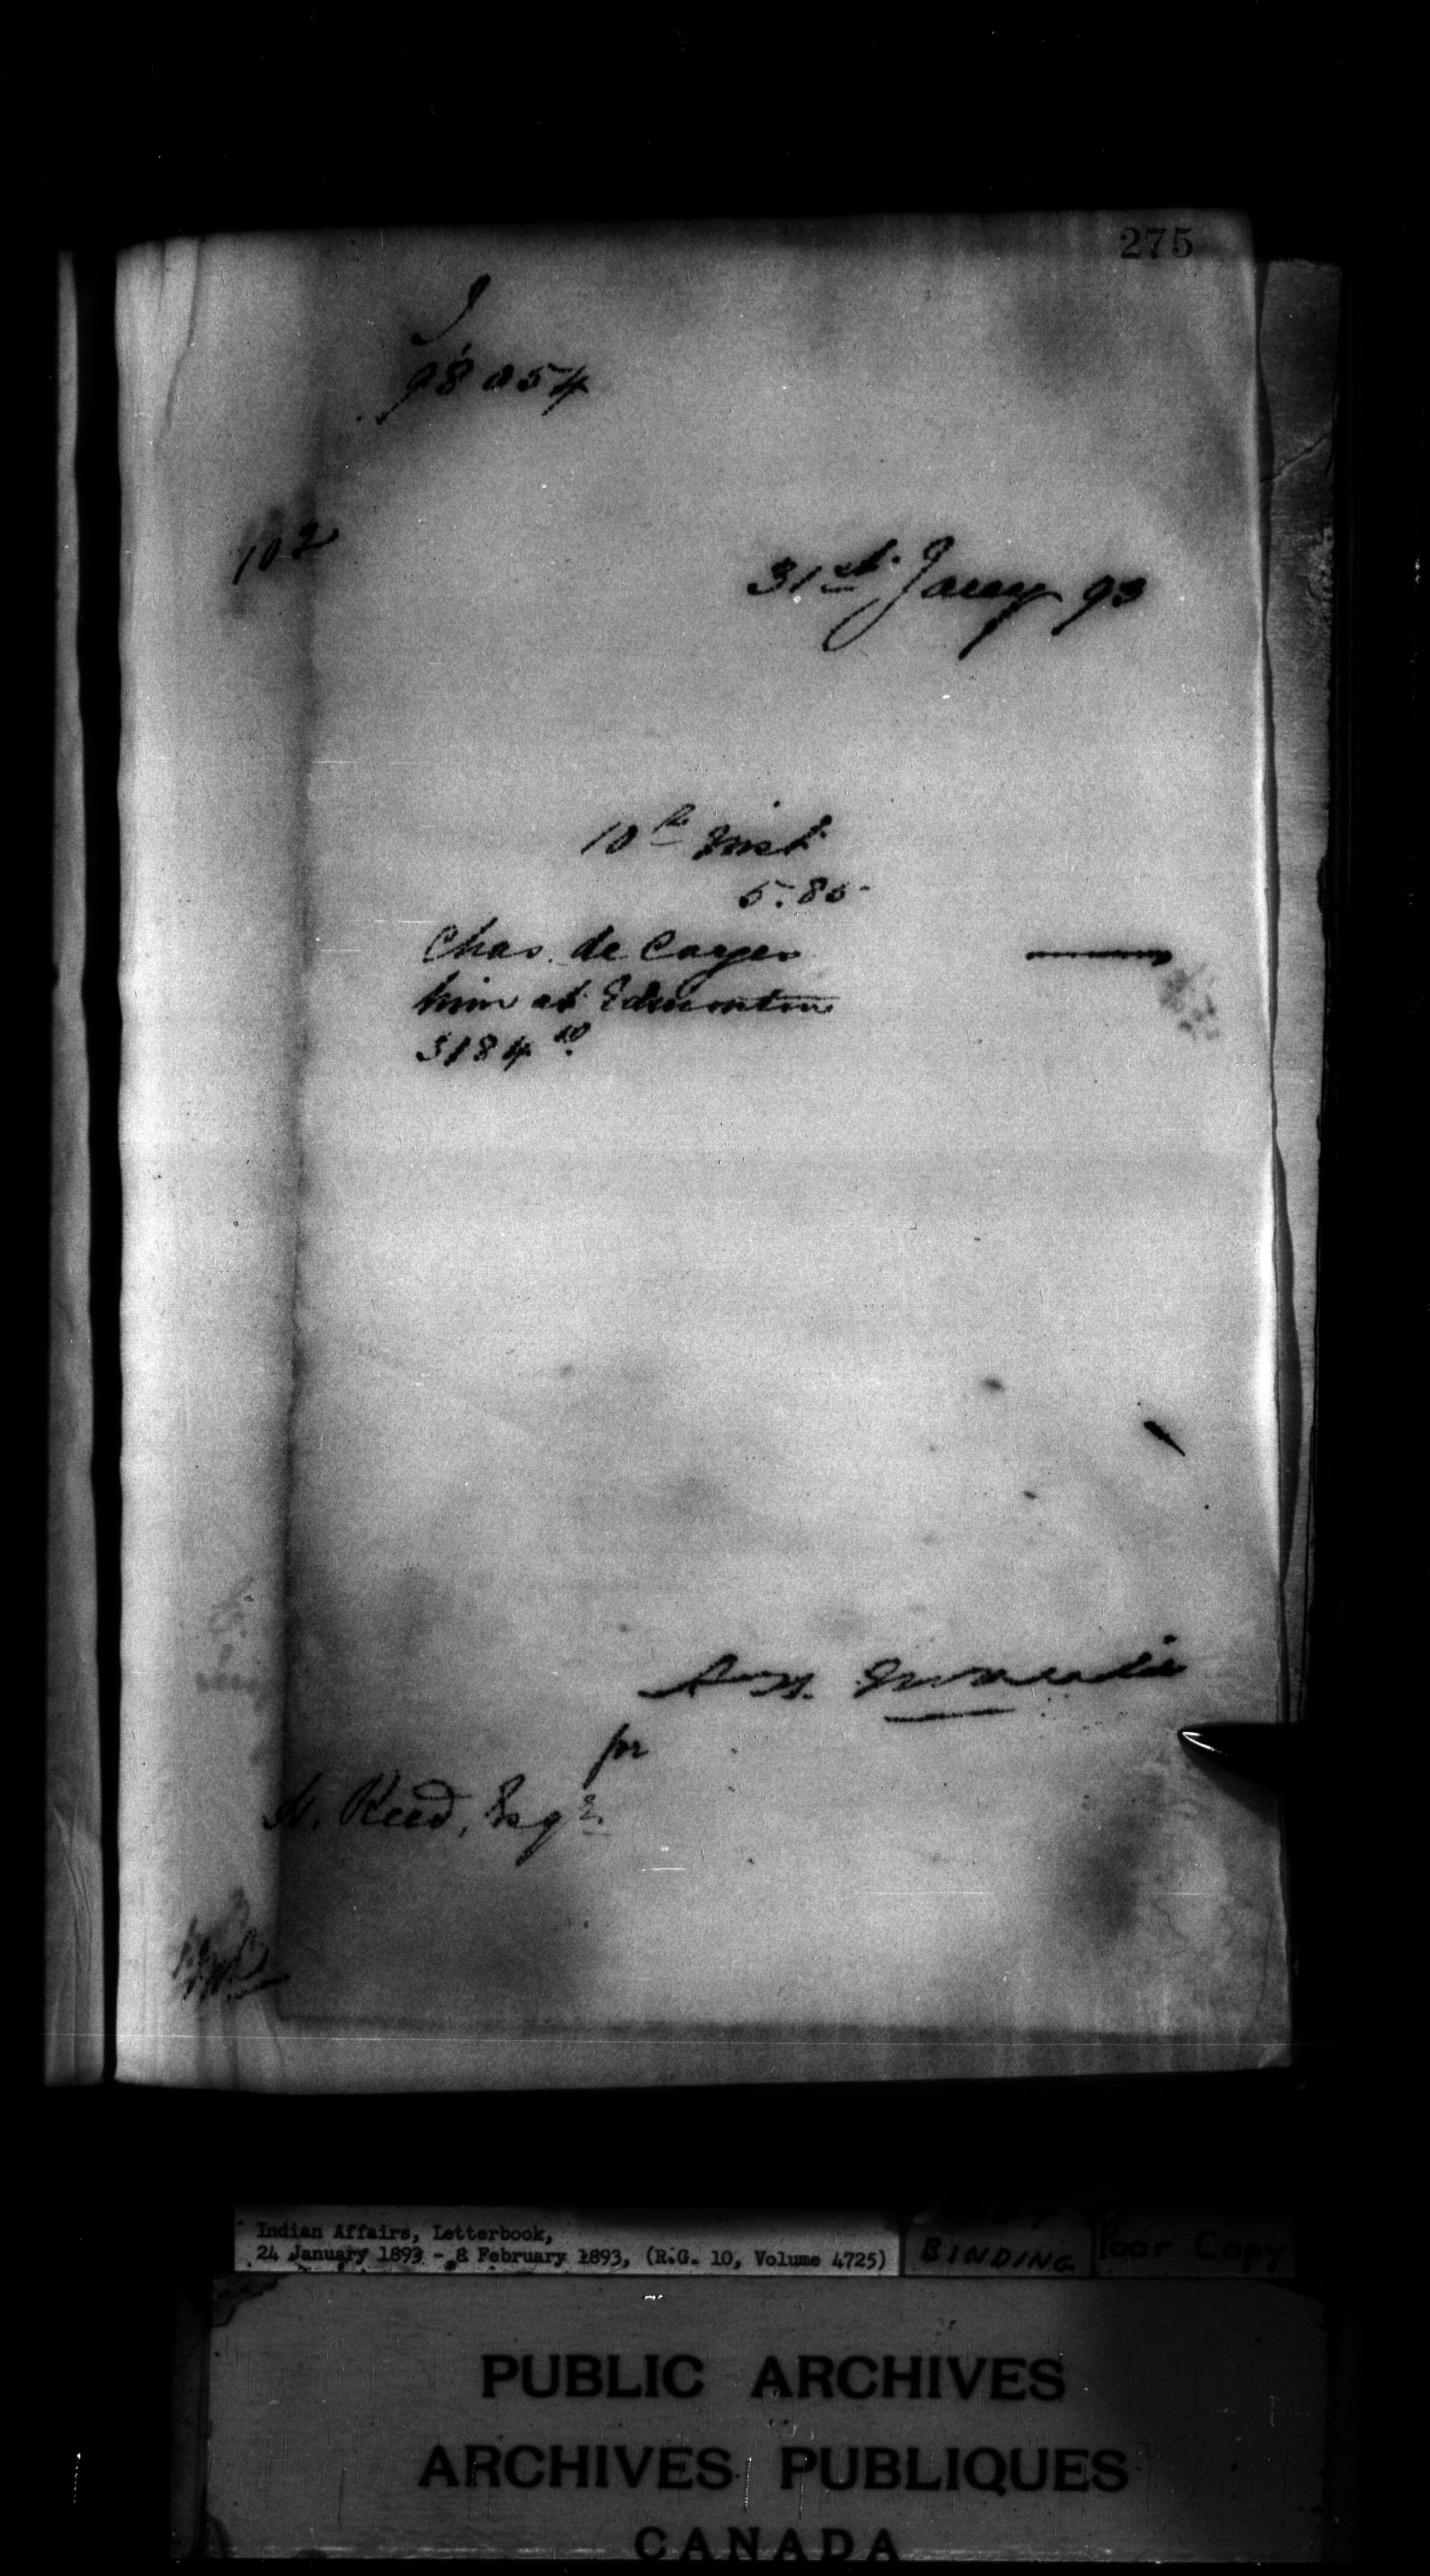 275
98054
102
31st Jany 93
10th Inst
5.85
Chas. de Cazes
him at Edmonton
3184
for
H. Reed, Esqr.
Indian Affairs, Letterbook,
24 January 1893 - 8 February 1893, (R.G. 10, Volume 4725)
BINDING
Poor Copy
PUBLIC ARCHIVES
ARCHIVES PUBLIQUES
CANADA